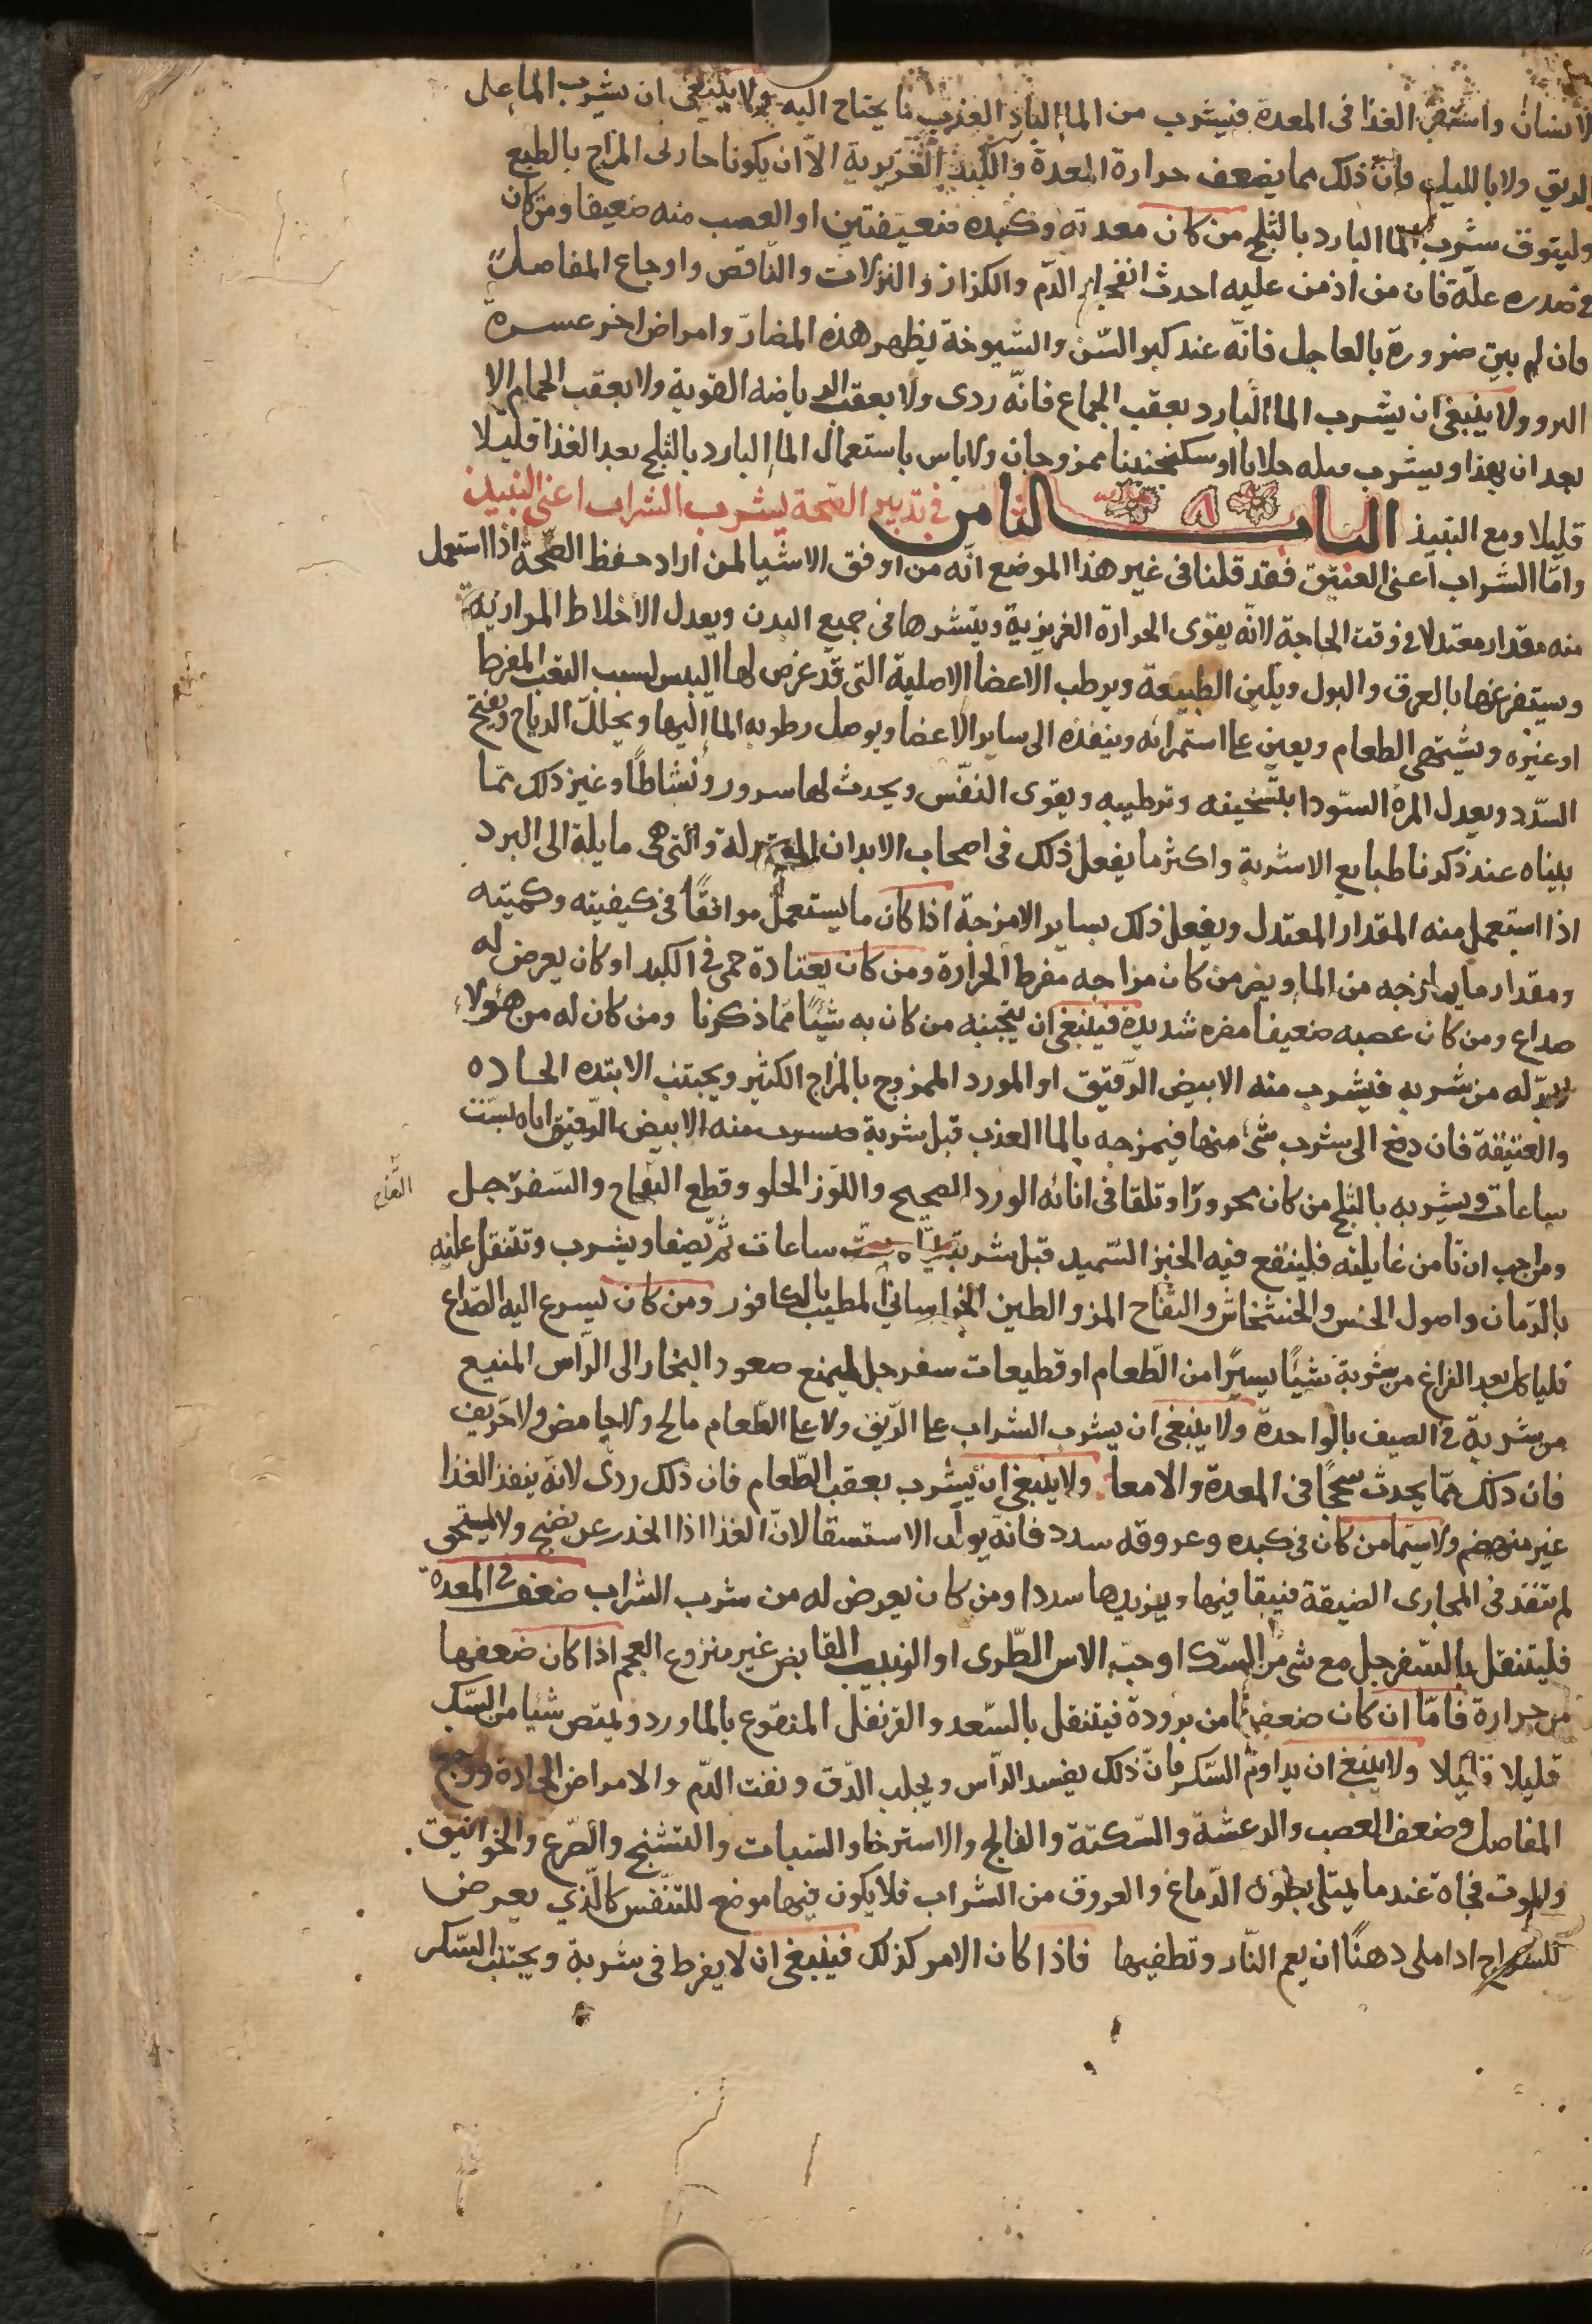 الانسان واستقر الغذا فى المعدة فيشرب من الما البارد العذب ما يحتاج اليه ولا ينبغى ان يشرب الما على
الريق ولا بالليل فان ذلك مما يضعف حرارة المعدة والكبد الغريزية الا ان يكونا حارى المزاج بالطبع
وليتوق شرب الما البارد بالثلج من كان معدته وكبده ضعيفتين او العصب منه ضعيفا ومن كان
فى صدره علة فان من اذمن عليه احدث انفجار الدم والكزاز والنزلات والنافض واوجاع المفاصل
وان لم يبين ضرورة بالعاجل فانه عند كبر السن والشيوخة يظهر هذه المضار وامراض اخر عسرة
البرو ولا ينبغى ان يشرب الما البارد بعقب الجماع فانه ردى ولا بعقب الرياضه القوية ولا بعقب الحمام الا
بعد ان يهذا ويشرب قبله جلابا او سكنجبينا ممزوجان ولا باس باستعمال الما البارد بالثلج بعد الغذا قليلا
قليلا ومع النبيذ الباب ٨ الثامن فى تدبير الصحة بشرب الشراب اعنى النبيذ
واما الشراب اعنى العتيق فقد قلنا فى غير هذا الموضع انه من اوفق الاشيا لمن اراد حفظ الصحة اذا استعمل
منه مقدار معتدلا فى وقت الحاجة لانه يقوى الحرارة الغريزية وينشرها فى جميع البدن ويعدل الاخلاط المرارية
ويستفرغها بالعرق والبول ويلين الطبيعة ويرطب الاعضا الاصلية التى قد عرض لها اليبس لسبب التعب المفرط
او غيره ويشتهى الطعام ويعين على استمرائه وينفذه الى ساير الاعضا ويوصل رطوبه الما اليها ويحلل الرياح ويفتح
السدد ويعدل المرة السودا بتسخينه وترطيبه ويقوى النفس ويحدث لها سرور ونشاطا وغير ذلك مما
بيناه عند ذكرنا طبايع الاشربة واكثر ما يفعل ذلك فى اصحاب الابدان المعتدلة والتى هى مايلة الى البرد
اذا استعمل منه المقدار المعتدل ويفعل ذلك بساير الامزجة اذا كان ما يستعمل موافقا فى كيفيته وكميته
ومقدار ما يمازجه من الما ويضر من كان مزاجه مفرط الحرارة ومن كان يعتادة حمى فى الكبد او كان يعرض له
صداع ومن كان عصبه ضعيفا مضره شديدة فينبغى ان يتجنبه من كان به شيئا مما ذكرنا ومن كان له من هؤلاء
بد له من شربه فيشرب منه الابيض الرقيق او المورد الممزوج بالمزاج الكثير ويجتنب الانبذه الحاده
والعتيقة فان دفع الى شرب شئ منها فيمزجه بالما العذب قبل شربة منه الابيض الرقيق اياه بست
ساعات ويشربه بالثلج من كان محرورا وتلقا فى انائه الورد الصحيح واللوز الحلو وقطع التفاح والسفرجل
ومن احب ان يامن غايلته فلينقع فيه الخبز السميد قبل شربه ساعات ثم يصفا ويشرب وتتنقل عليه
بالرمان واصول الخس والخشخاش والتفاح المز والطين الخراسانى المطيب بالكافور ومن كان يسرع اليه الصداع
فلياكل بعد الفراغ من شربة شيئا يسيرا من الطعام او قطيعات سفرجل ليمنع صعود البخار الى الراس المنيع
من شربة فى الصيف بالواحدة ولا ينبغى ان يشرب الشراب على الريق ولا على الطعام مالح ولا حامض ولا حريف
فان ذلك مما يحدث سحجا فى المعدة والامعا ولا ينبغى ان يشرب بعقب الطعام فان ذلك ردى لانه ينفذ الغذا
غير منهضم ولا سيما من كان فى كبده وعروقه سدد فانه يولد الاستسقا لان الغذا اذا انحدر عن نضج ولا
لم تنفذ فى المجارى الضيقة فيبقا فيها ويزيدها سددا ومن كان يعرض له من شرب الشراب ضعف فى المعدة
فليتنقل بالسفرجل مع شى من السك او حب الاس الطرى او الزبيب القابض غير منزوع العجم اذا كان ضعفها
من حرارة فاما ان كان ضعفها من برودة فيتنقل بالسعد والقرنفل المنقوع بالماورد ويمتص شيا من السك
قليلا قليلا ولا ينبغ ان يداوم السكر فان ذلك يفسد الراس ويجلب الدق ونفث الدم والامراض الحادة ووجع
المفاصل وضعف العصب والرعشة والسكتة والفالج والاسترخا والسبات والتشنج والصرع والخوانيق
والموت فجاة عندما يمتلى بطون الدماغ والعروق من الشراب فلا يكون فيها موضع للتنفس كالذي يعرض
للسراج اذا ملى دهنا ان يعم النار وتطفيها فاذا كان الامر كذلك فينبغى ان لا يفرط فى شربة ويجتنب السكر